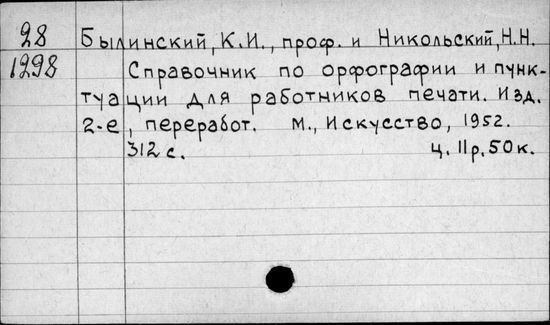 28 Былинский, К.И., проф. и Никольский, Н.Н.
1298 Справочник по орфографии и пунк-
туации для работников печати. Изд.
2-е, переработ. М., Искусство, 1952.
312 с. ц. 11р.50к.